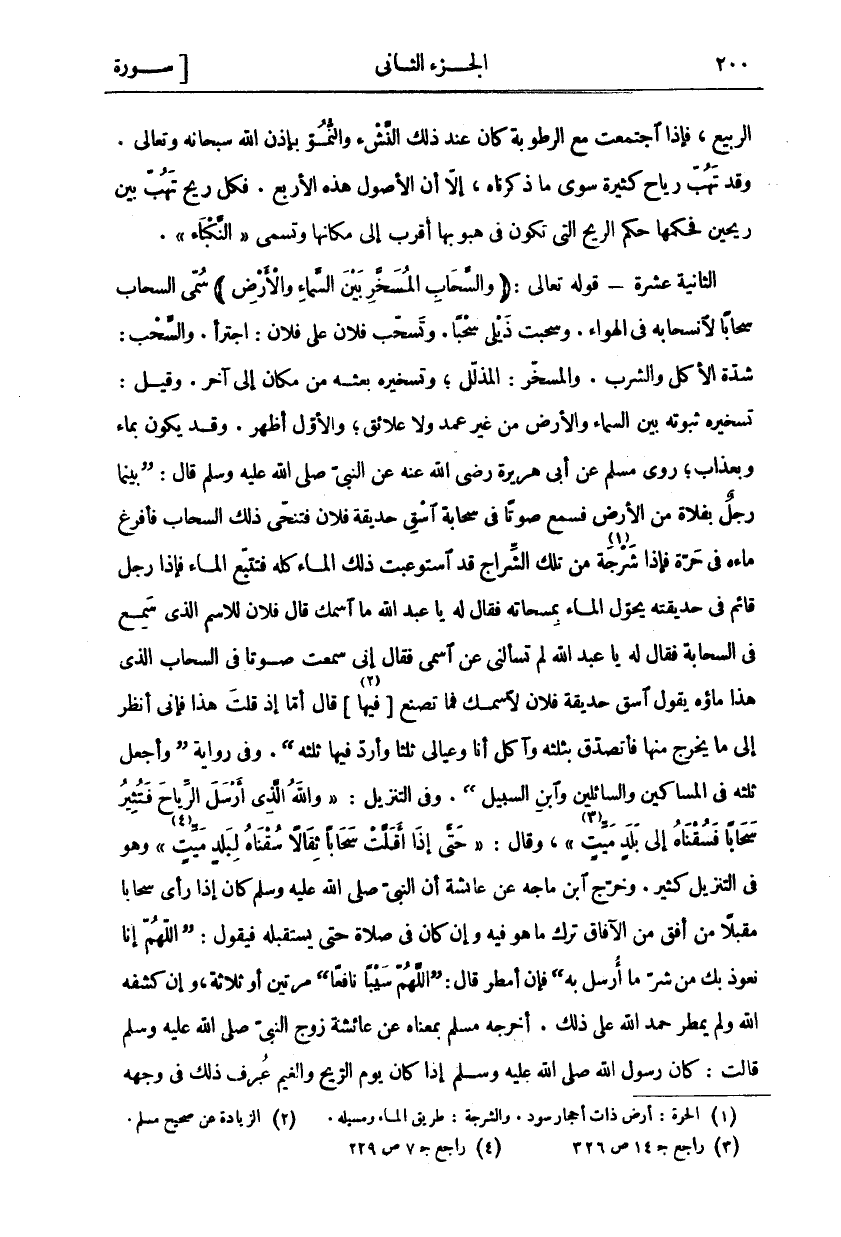 ٢٠٠ الجـزء الثانى [ ســورة
الربيع ، فإذا ٱجتمعت مع الرطوبة كان عند ذلك النَّشْء والنُّمُوّ بإذن الله سبحانه وتعالى .
وقد تَهُبّ رياح كثيرة سوى ما ذكرناه ، إلّا أن الأصول هذه الأربع . فكل ريح تَهُبّ بين
ريحين فحكمها حكم الريح التى تكون فى هبوبها أقرب إلى مكانها وتسمى « النَّكْبَاء » .
الثانية عشرة – قوله تعالى : ﴿ والسَّحَابِ المُسَخَّرِ بَيْنَ السَّمَاءِ والْأَرْضِ ﴾ سُمّى السحاب
سحابًا لٱنسحابه فى الهواء . وسحبت ذَيْلى سَحْبًا . وتَسحّب فلان على فلان : اجترأ . والسَّحْب :
شدّة الأكل والشرب . والمسخّر : المذلّل ؛ وتسخيره بعثـه من مكان إلى آخر . وقيـل :
تسخيره ثبوته بين السماء والأرض من غير عمد ولا علائق ؛ والأوّل أظهر . وقـد يكون بماء
وبعذاب ؛ روى مسلم عن أبى هريرة رضى الله عنه عن النبىّ صلى الله عليه وسلم قال : ”بينما
رجلٌ بفلاة من الأرض فسمع صوتًا فى سحابة ٱسْقِ حديقة فلان فتنحّى ذلك السحاب فأفرغ
ماءه فى حَرّة فإذا شَرْجَة (١) من تلك الشِّراج قد ٱستوعبت ذلك المـاء كله فتتبّع المـاء فإذا رجل
قائم فى حديقته يحوّل المـاء بِمسحاته فقال له يا عبد الله ما ٱسمك قال فلان للاسم الذى سَمِـع
فى السحابة فقال له يا عبد الله لم تسألنى عن ٱسمى فقال إنى سمعت صـوتا فى السحاب الذى
هذا ماؤه يقول ٱسق حديقة فلان لٱسمـك فما تصنع [ فيها ] (٢) قال أمّا إذ قلتَ هذا فإنى أنظر
إلى ما يخرج منها فأتصدّق بثلثه وآكل أنا وعيالى ثلثا وأردّ فيها ثلثه“ . وفى رواية ”وأجعل
ثلثه فى المساكين والسائلين وٱبنِ السبيل“ . وفى التنزيل : « واللهُ الَّذِى أَرْسَلَ الرِّيَاحَ فَتُثِيرُ
سَحَابًا فَسُقْنَاهُ إلى بَلَدٍ مَيِّتٍ (٣) » ، وقال : « حَتَّى إذَا أَقَلَّتْ سَحَابًا ثِقَالًا سُقْنَاهُ لِبَلَدٍ مَيِّتٍ (٤) » وهو
فى التنزيل كثير . وخرّج ٱبن ماجه عن عائشة أن النبىّ صلى الله عليه وسلم كان إذا رأى سحابا
مقبلًا من أفق من الآفاق ترك ما هو فيه وإن كان فى صلاة حتى يستقبله فيقول : ”اللّهُمّ إنا
نعوذ بك من شرّ ما أُرسل به“ فإن أمطر قال : ”اللَّهُمّ سَيْبًا نافعًا“ مرتين أو ثلاثة ، وإن كشفه
الله ولم يمطر حمد الله على ذلك . أخرجه مسلم بمعناه عن عائشة زوج النبىّ صلى الله عليه وسلم
قالت : كان رسول الله صلى الله عليه وسـلم إذا كان يوم الرّيح والغيم عُرف ذلك فى وجهه
(١) الحرة : أرض ذات أحجار سود . والشرجة : طريق المـاء ومسيله . (٢) الزيادة عن صحيح مسلم .
(٣) راجع جـ ١٤ ص ٣٢٦ (٤) راجع جـ ٧ ص ٢٢٩